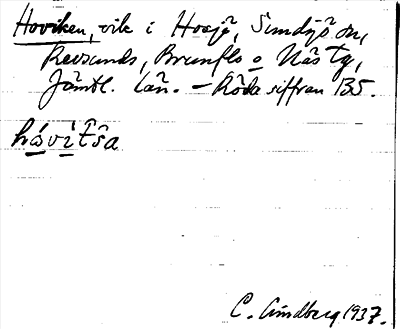 Hoviken, vik i Hosjö, Sundsjö sn,
Revsunds, Brunflo o Näs tg,
Jämtl. län. – Röda siffran 135.
hávìt̂s̀a
C. Lindberg 1937.